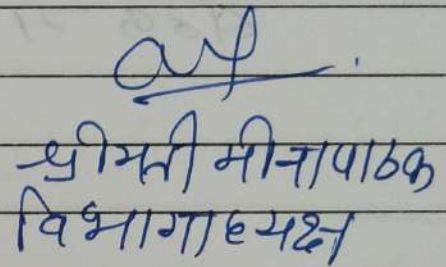 श्रीमती मीना पाठक
विभागाध्यक्ष